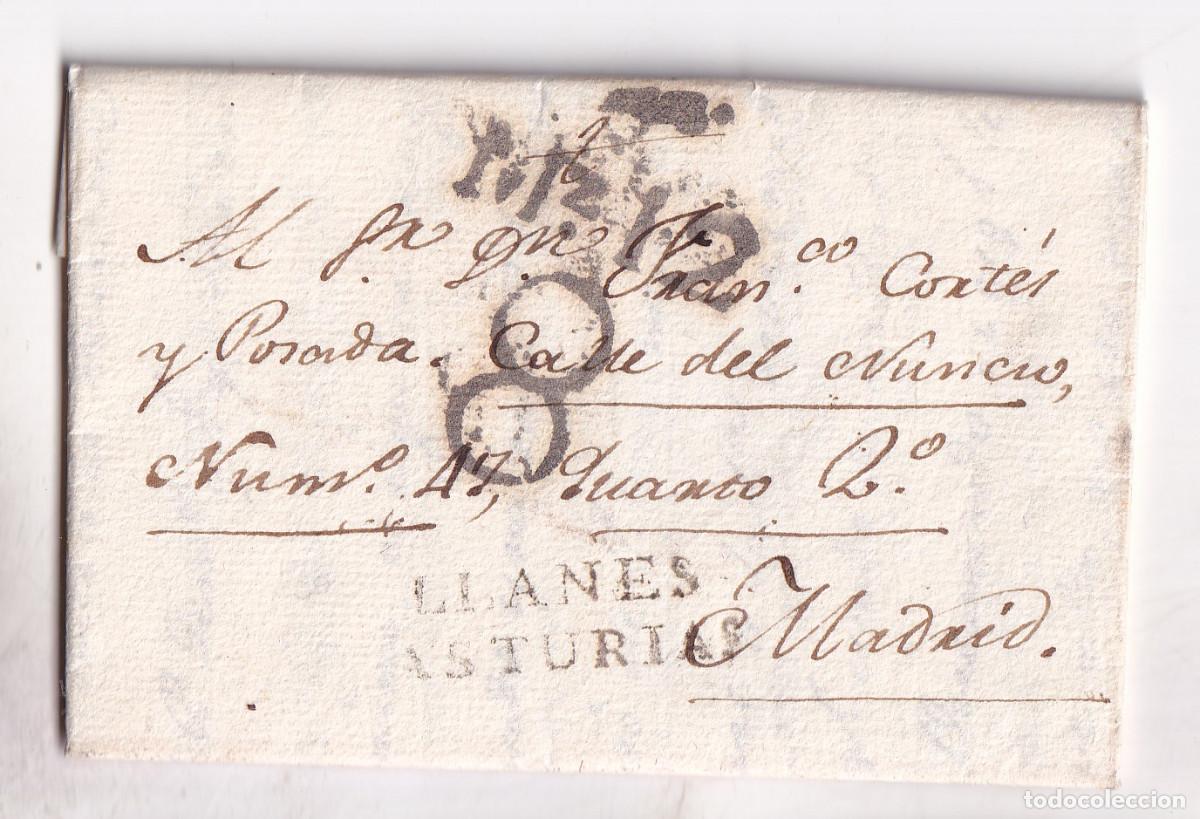 Al Sr. Dn. Fran.co Cortés
y Posada. Calle del Nuncio,
Num.o 47, Quarto 2.o
LLANES
ASTURIAS
Madrid.
todocoleccion